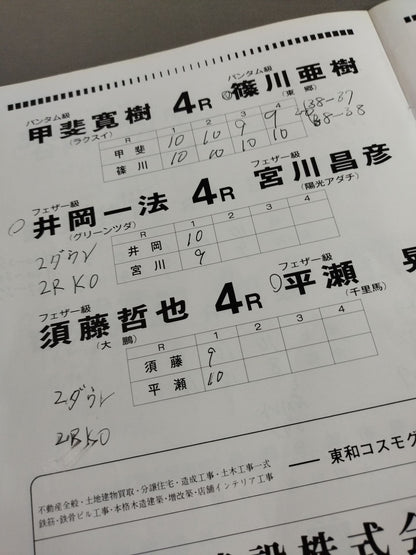 バンタム級 バンタム級
甲斐寛樹 4R ○篠川亜樹
(ラクスイ) (東郷)
R 1 2 3 4
甲斐 10 10 9 9 38-37
篠川 10 10 10 10 38-38
フェザー級 フェザー級
○井岡一法 4R 宮川昌彦
(グリーンツダ) (陽光アダチ)
R 1 2 3 4
井岡 10
宮川 9
2ダウン
2RKO
フェザー級 フェザー級
須藤哲也 4R ○平瀬
(大鵬) (千里馬)
R 1 2 3 4
須藤 9
平瀬 10
2ダウン
2RKO
不動産全般・土地建物買取・分譲住宅・造成工事・土木工事一式
鉄筋・鉄骨ビル工事・本格木造建築・増改築・店舗インテリア工事
東和コスモグ
設株式会